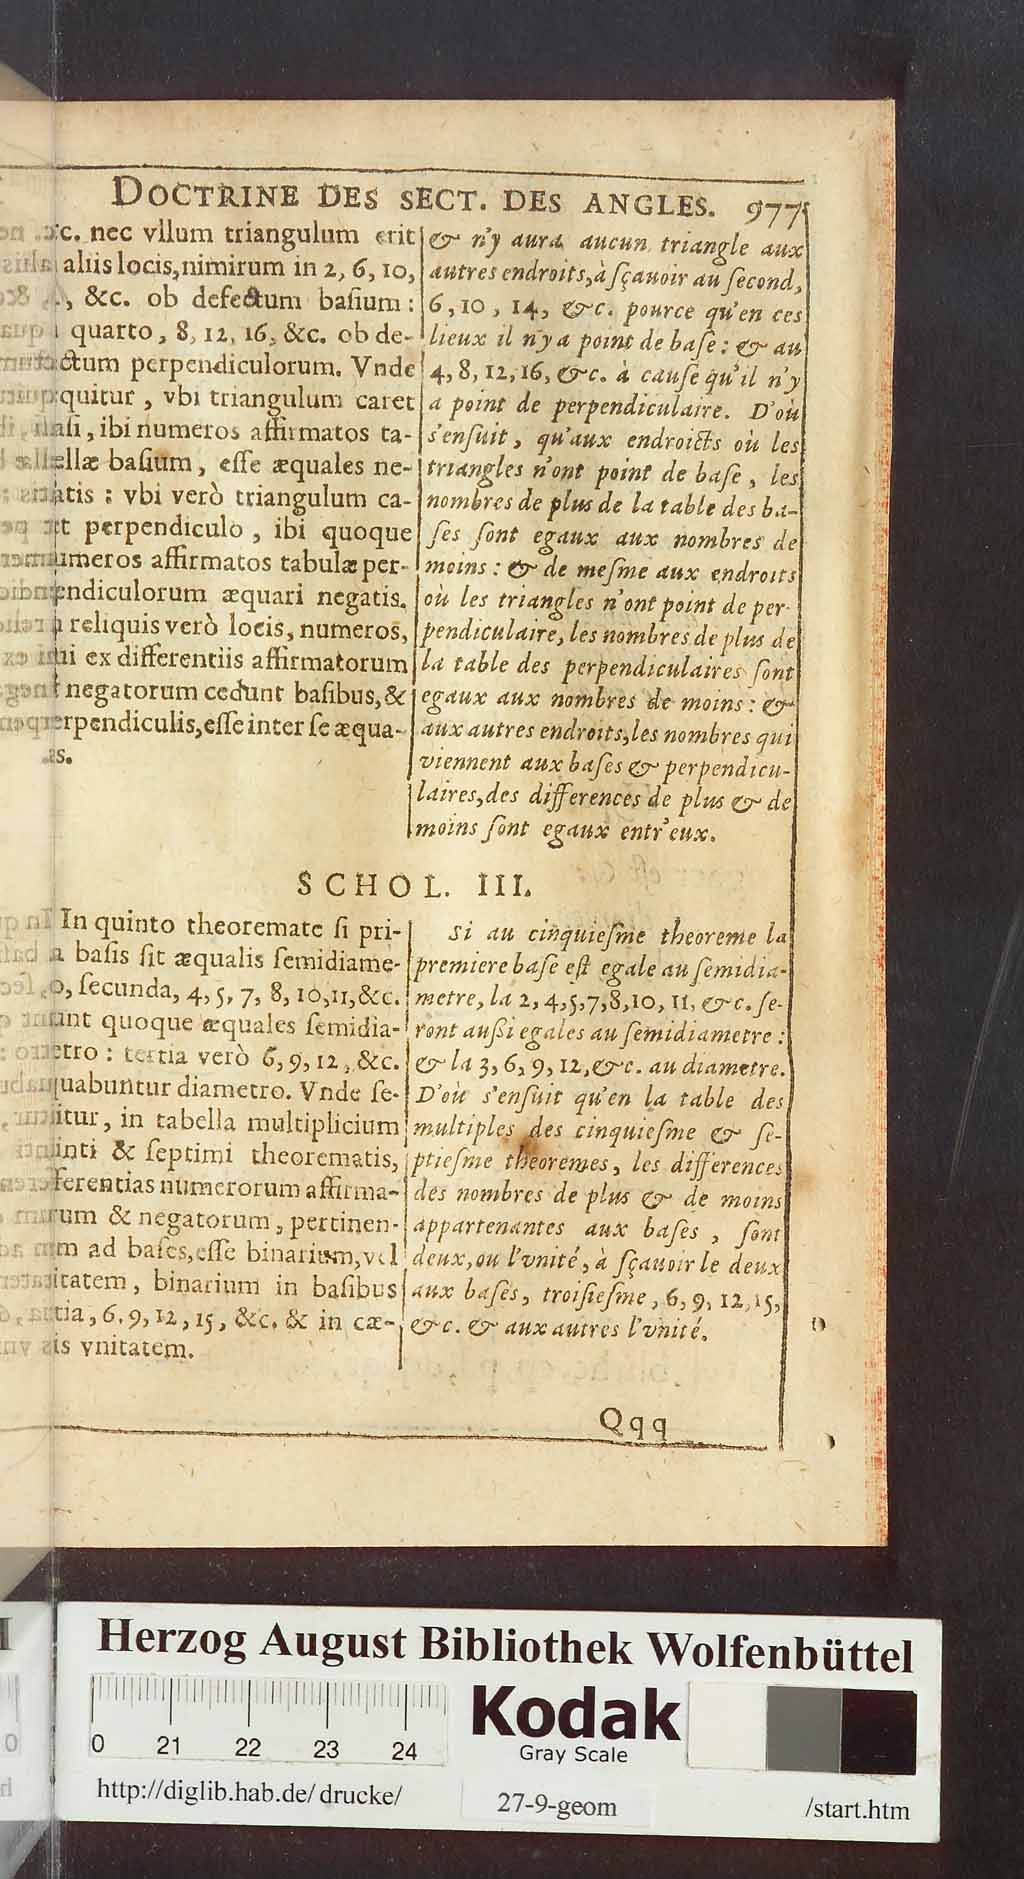 DOCTRINE DES SECT. DES ANGLES. 977
&c. nec vllum triangulum erit
aliis locis, nimirum in 2, 6, 10,
&c. ob defectum basium:
quarto, 8, 12, 16, &c. ob de-
ctum perpendiculorum. Vnde
quitur, vbi triangulum caret
asi, ibi numeros affirmatos ta-
ellæ basium, esse æquales ne-
atis: vbi verò triangulum ca-
et perpendiculo, ibi quoque
umeros affirmatos tabulæ per-
endiculorum æquari negatis.
reliquis verò locis, numeros,
ui ex differentiis affirmatorum
negatorum cedunt basibus, &
erpendiculis, esse inter se æqua-
es.
& n'y aura aucun triangle aux
autres endroits, à sçauoir au second,
6, 10, 14, &c. pource qu'en ces
lieux il n'y a point de base: & au
4, 8, 12, 16, &c. à cause qu'il n'y
a point de perpendiculaire. D'où
s'ensuit, qu'aux endroicts où les
triangles n'ont point de base, les
nombres de plus de la table des ba-
ses sont egaux aux nombres de
moins: & de mesme aux endroits
où les triangles n'ont point de per-
pendiculaire, les nombres de plus de
la table des perpendiculaires sont
egaux aux nombres de moins: &
aux autres endroits, les nombres qui
viennent aux bases & perpendicu-
laires, des differences de plus & de
moins sont egaux entr'eux.
SCHOL. III.
In quinto theoremate si pri-
a basis sit æqualis semidiame-
o, secunda, 4, 5, 7, 8, 10, 11, &c.
unt quoque æquales semidia-
etro: tertia verò 6, 9, 12, &c.
quabuntur diametro. Vnde se-
itur, in tabella multiplicium
inti & septimi theorematis,
ferentias numerorum affirma-
rum & negatorum, pertinen-
m ad bases, esse binarium, vel
itatem, binarium in basibus
tia, 6. 9, 12, 15, &c. & in cæ-
is vnitatem.
Si au cinquiesme theoreme la
premiere base est egale au semidia-
metre, la 2, 4, 5, 7, 8, 10, 11, &c. se-
ront aussi egales au semidiametre:
& la 3, 6, 9, 12, &c. au diametre.
D'où s'ensuit qu'en la table des
multiples des cinquiesme & se-
ptiesme theoremes, les differences
des nombres de plus & de moins
appartenantes aux bases, sont
deux, ou l'vnité, à sçauoir le deux
aux bases, troisiesme, 6, 9, 12, 15,
&c. & aux autres l'vnité.
Qqq
Herzog August Bibliothek Wolfenbüttel
0 21 22 23 24
Kodak
Gray Scale
http://diglib.hab.de/ drucke/ 27-9-geom /start.htm